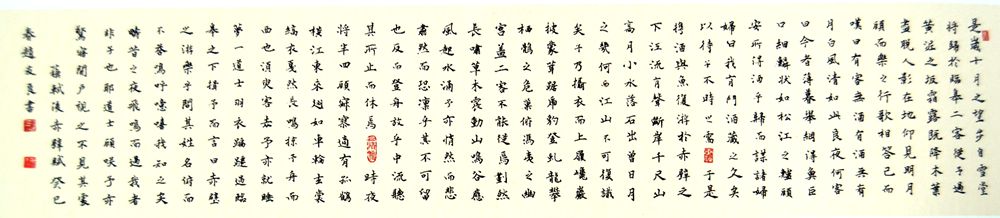 是歲十月之望步自雪堂
將歸於臨皋二客從予過
黃泥之坂霜露既降木葉
盡脫人影在地仰見明月
顧而樂之行歌相答已而
嘆曰有客無酒有酒無肴
月白風清如此良夜何客
曰今者薄暮舉網得魚巨
口細鱗狀如松江之鱸顧
安所得酒乎歸而謀諸婦
婦曰我有斗酒藏之久矣
以待子不時之需於是
攜酒與魚復游於赤壁之
下江流有聲斷岸千尺山
高月小水落石出曾日月
之幾何而江山不可復識
矣予乃攝衣而上履巉巖
披蒙茸踞虎豹登虬龍攀
栖鶻之危巢俯馮夷之幽
宮蓋二客不能從焉劃然
長嘯草木震動山鳴谷應
風起水涌予亦悄然而悲
肅然而恐凜乎其不可留
也反而登舟放乎中流聽
其所止而休焉時夜
將半四顧寂寥適有孤鶴
橫江東來翅如車輪玄裳
縞衣戛然長鳴掠予舟而
西也須臾客去予亦就睡
夢一道士羽衣蹁躚過臨
皋之下揖予而言曰赤壁
之游樂乎問其姓名俯而
不答嗚呼噫嘻我知之矣
疇昔之夜飛鳴而過我者
非子也耶道士顧笑予亦
驚寤開戶視之不見其處
蘇軾後赤壁賦癸巳
春趙友良書